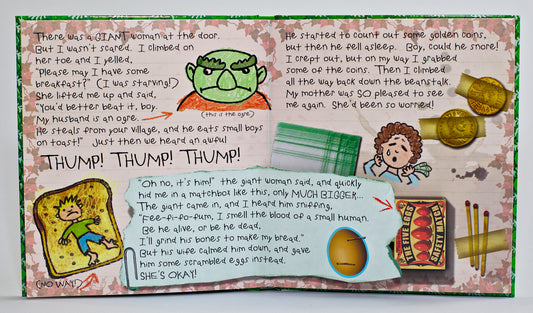 There was a GIANT woman at the door.
But I wasn't scared. I climbed on
her toe and I yelled,
"Please may I have some
breakfast?" (I was starving!)
She lifted me up and said,
"You'd better beat it, boy.
My husband is an ogre.
He steals from your village, and he eats small boys
on toast!" Just then we heard an awful
THUMP! THUMP! THUMP!
(this is the ogre)
(NO WAY!)
"Oh no, it's him!" the giant woman said, and quickly
hid me in a matchbox like this, only MUCH BIGGER...
The giant came in, and I heard him sniffing,
"Fee-fi-fo-fum, I smell the blood of a small human.
Be he alive, or be he dead,
I'll grind his bones to make my bread."
But his wife calmed him down, and gave
him some scrambled eggs instead.
SHE'S OKAY!
He started to count out some golden coins,
but then he fell asleep. Boy, could he snore!
I crept out, but on my way I grabbed
some of the coins. Then I climbed
all the way back down the beanstalk.
My mother was SO pleased to see
me again. She'd been so worried!
THE FIVE EGGS
SAFETY MATCH